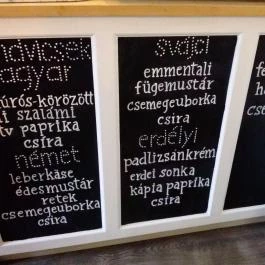 túrós-körözött
szalámi
tv paprika
csíra
német
leberkäse
édesmustár
retek
csemegeuborka
csíra
svájci
emmentali
fügemustár
csemegeuborka
csíra
erdélyi
padlizsánkrém
erdei sonka
kápia paprika
csíra